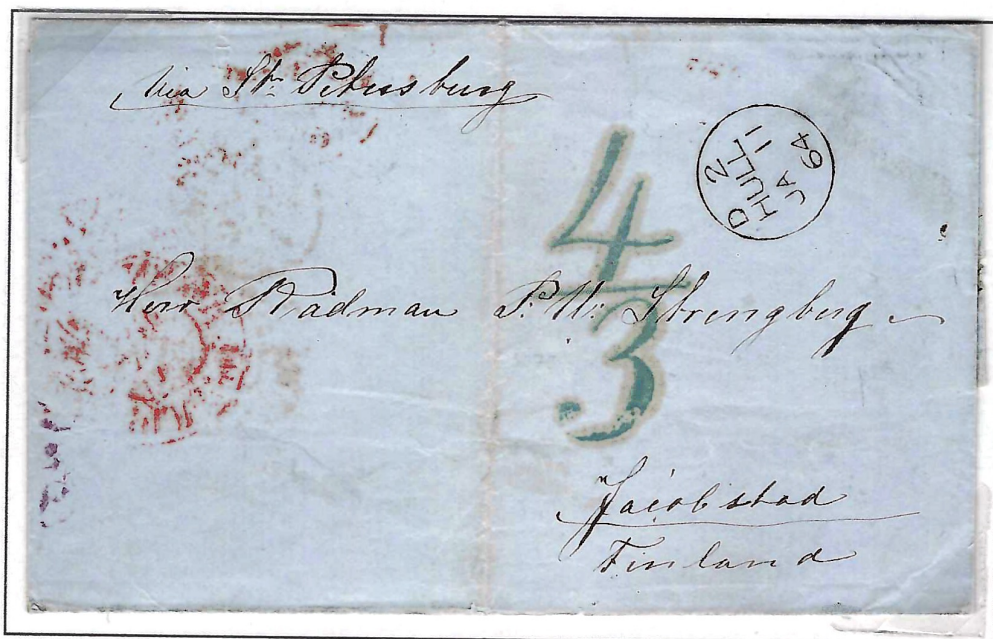 via St. Petersburg
D
2
HULL
JA 11
64
4
3
Herr Rådman P. W: Strengberg
Jacobstad
Finland